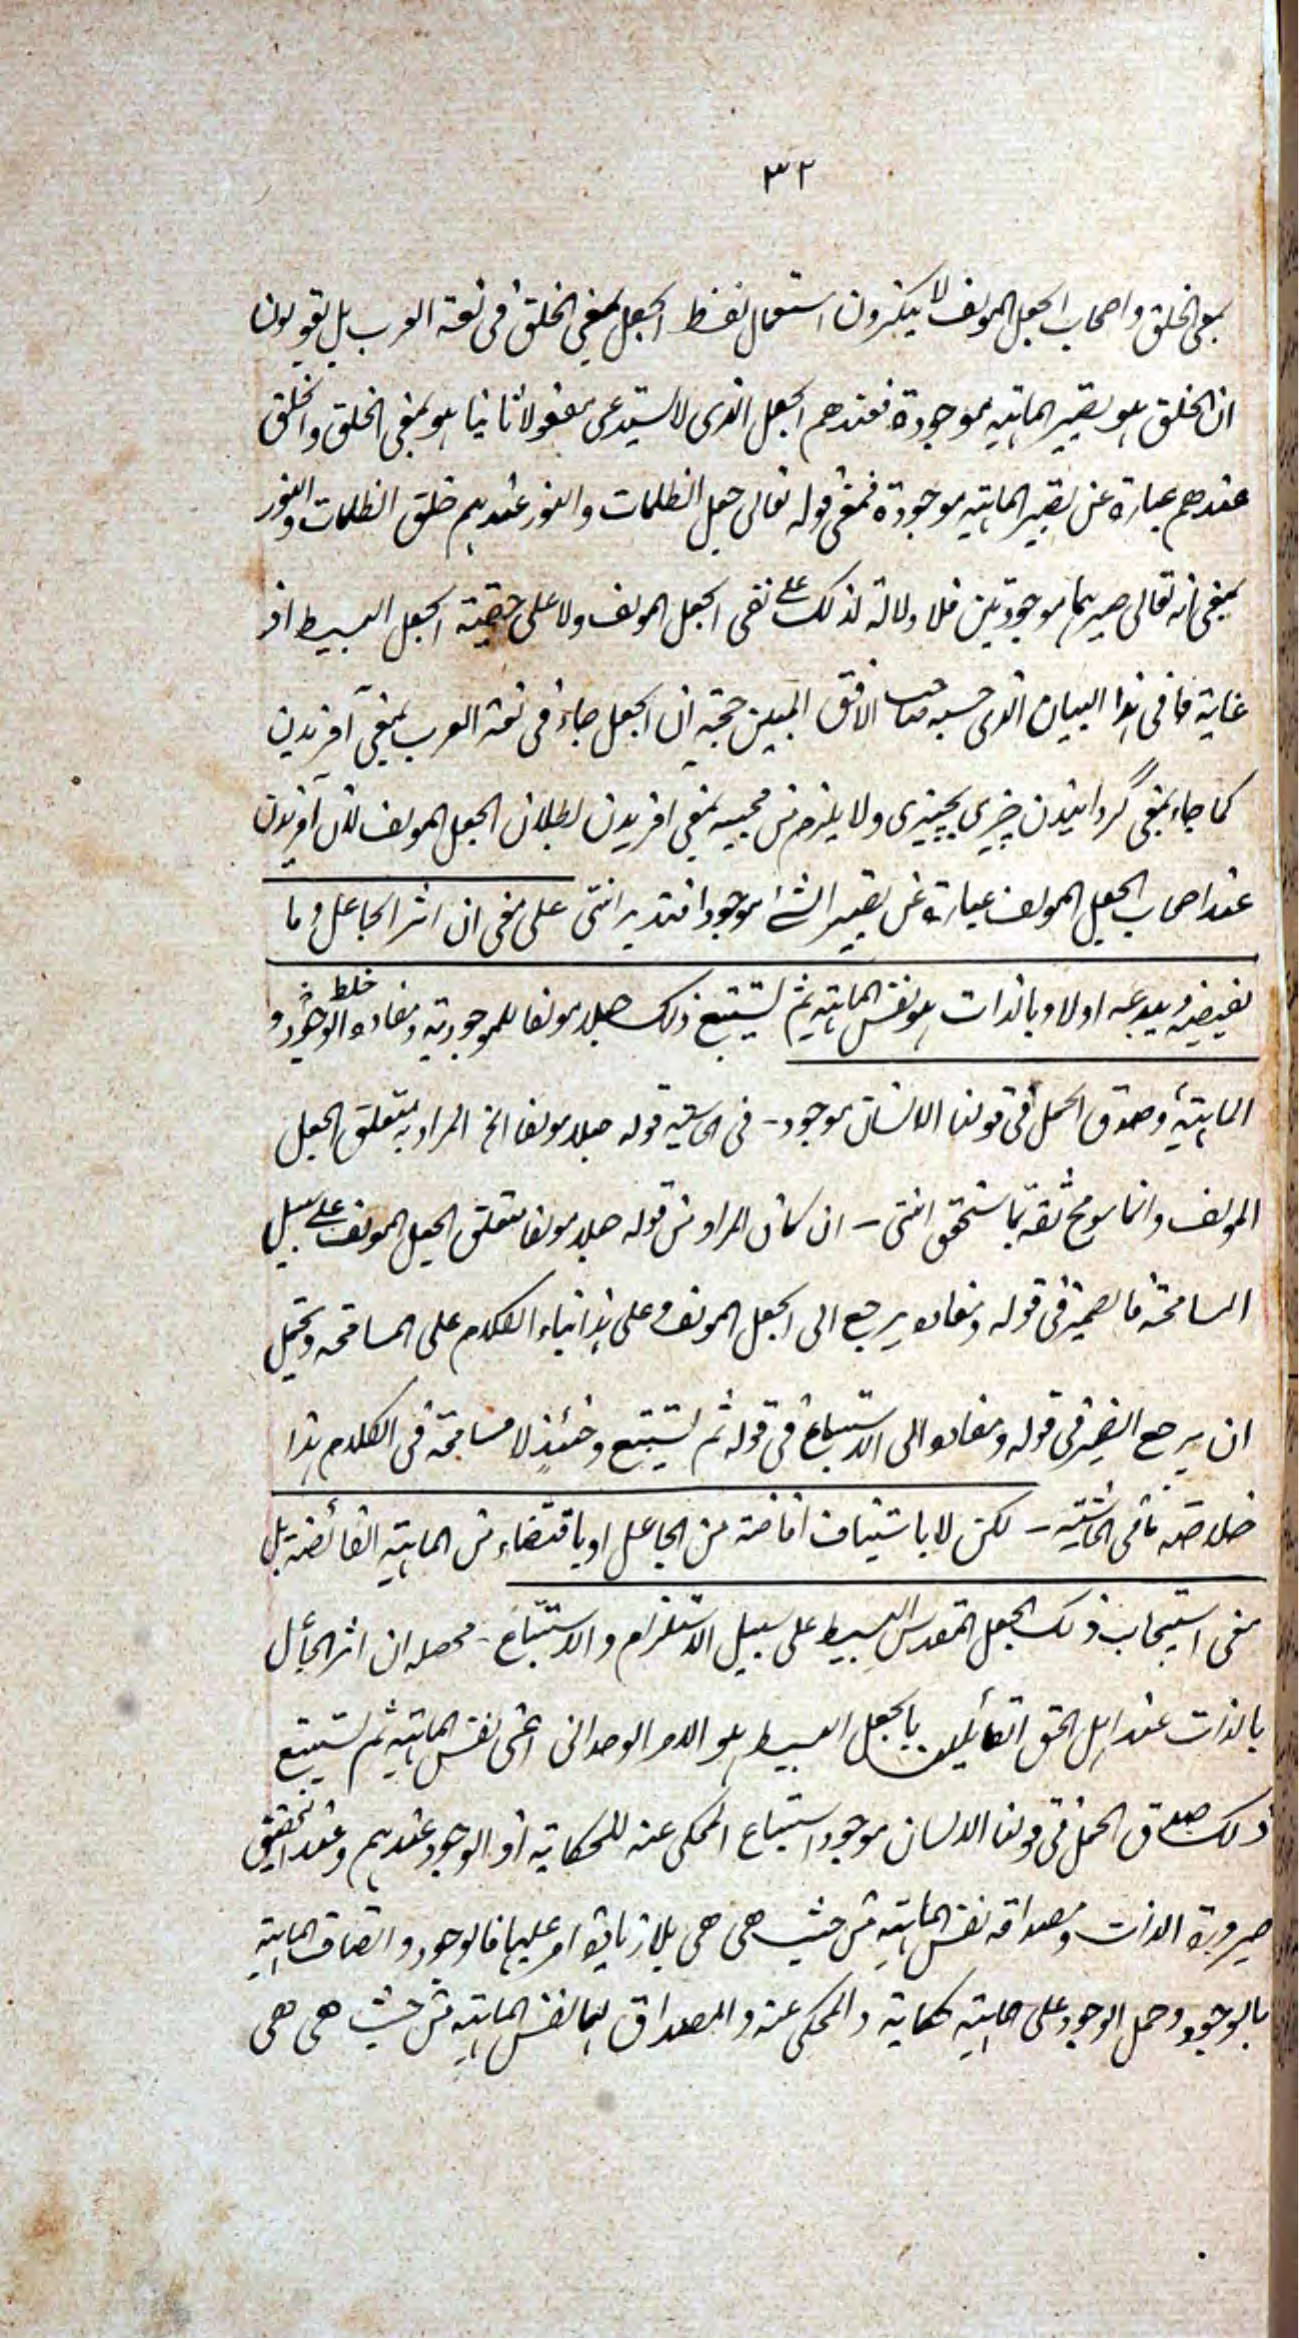 ٣٢
بمعنى الخلق واصحاب الجعل المولف لا ينكرون استعمال لفظ الجعل بمعنى الخلق فى لغة العرب بل يقولون
ان الخلق هو تصيير الماهية موجودة فعندهم الجعل الذى لا يستدعى مفعولا ثانيا هو بمعنى الخلق والخلق
عندهم عبارة عن تصيير الماهية موجودة فمعنى قوله تعالى جعل الظلمات والنور عندهم خلق الظلمات والنور
بمعنى انه تعالى صيرهما موجودتين فلا دلالة لذلك على نفى الجعل المولف ولا على حقية الجعل البسيط اذ
غاية ما فى هذا البيان الذى حسبه صاحب الافق المبين حجة ان الجعل جاء فى لغة العرب بمعنى آفريدن
كما جاء بمعنى گردانيدن چيزى بچيزى ولا يلزم من مجيئه بمعنى آفريدن بطلان الجعل المولف لان آفريدن
عند اصحاب الجعل المولف عبارة عن تصيير الشئ موجودا فتدبر انتهى على معنى ان اثر الجاعل وما
يفيضه ويبدعه اولا وبالذات هو نفس الماهية ثم يستتبع ذلك جعلا مولفا للموجودية ومفاده خلط الوجود و
الماهية وصدق الحمل فى قولنا الانسان موجود - فى الحاشية قوله جعلا مولفا الخ المراد به متعلق الجعل
المولف وانما سومح ثقة بما ستحقق انتهى - ان كان المراد من قوله جعلا مولفا متعلق الجعل المولف على سبيل
المسامحة فالضمير فى قوله ومفاده يرجع الى الجعل المولف وعلى هذا بناء الكلام على المسامحة ويحتمل
ان يرجع الضمير فى قوله ومفاده الى الاستتباع فى قوله ثم يستتبع وحينئذ لا مسامحة فى الكلام هذا
خلاصة ما فى الحاشية - لكن لا باستيناف افاضة من الجاعل او باقتضاء من الماهية الفائضة بل
معنى استيجاب ذلك الجعل المقدس البسيط على سبيل الاستلزام والاستتباع - محصله ان اثر الجاعل
بالذات عند اهل الحق القائلين بالجعل البسيط هو الامر الوحدانى اعنى نفس الماهية ثم يستتبع
ذلك صدق الحمل فى قولنا الانسان موجود استتباع المحكى عنه للحكاية اذ الوجود عندهم وعند التحقيق
صيرورة الذات ومصداقه نفس الماهية من حيث هى هى بلا زيادة امر عليها فالوجود واتصاف الماهية
بالوجود وحمل الوجود على الماهية حكاية والمحكى عنه والمصداق لهما نفس الماهية من حيث هى هى